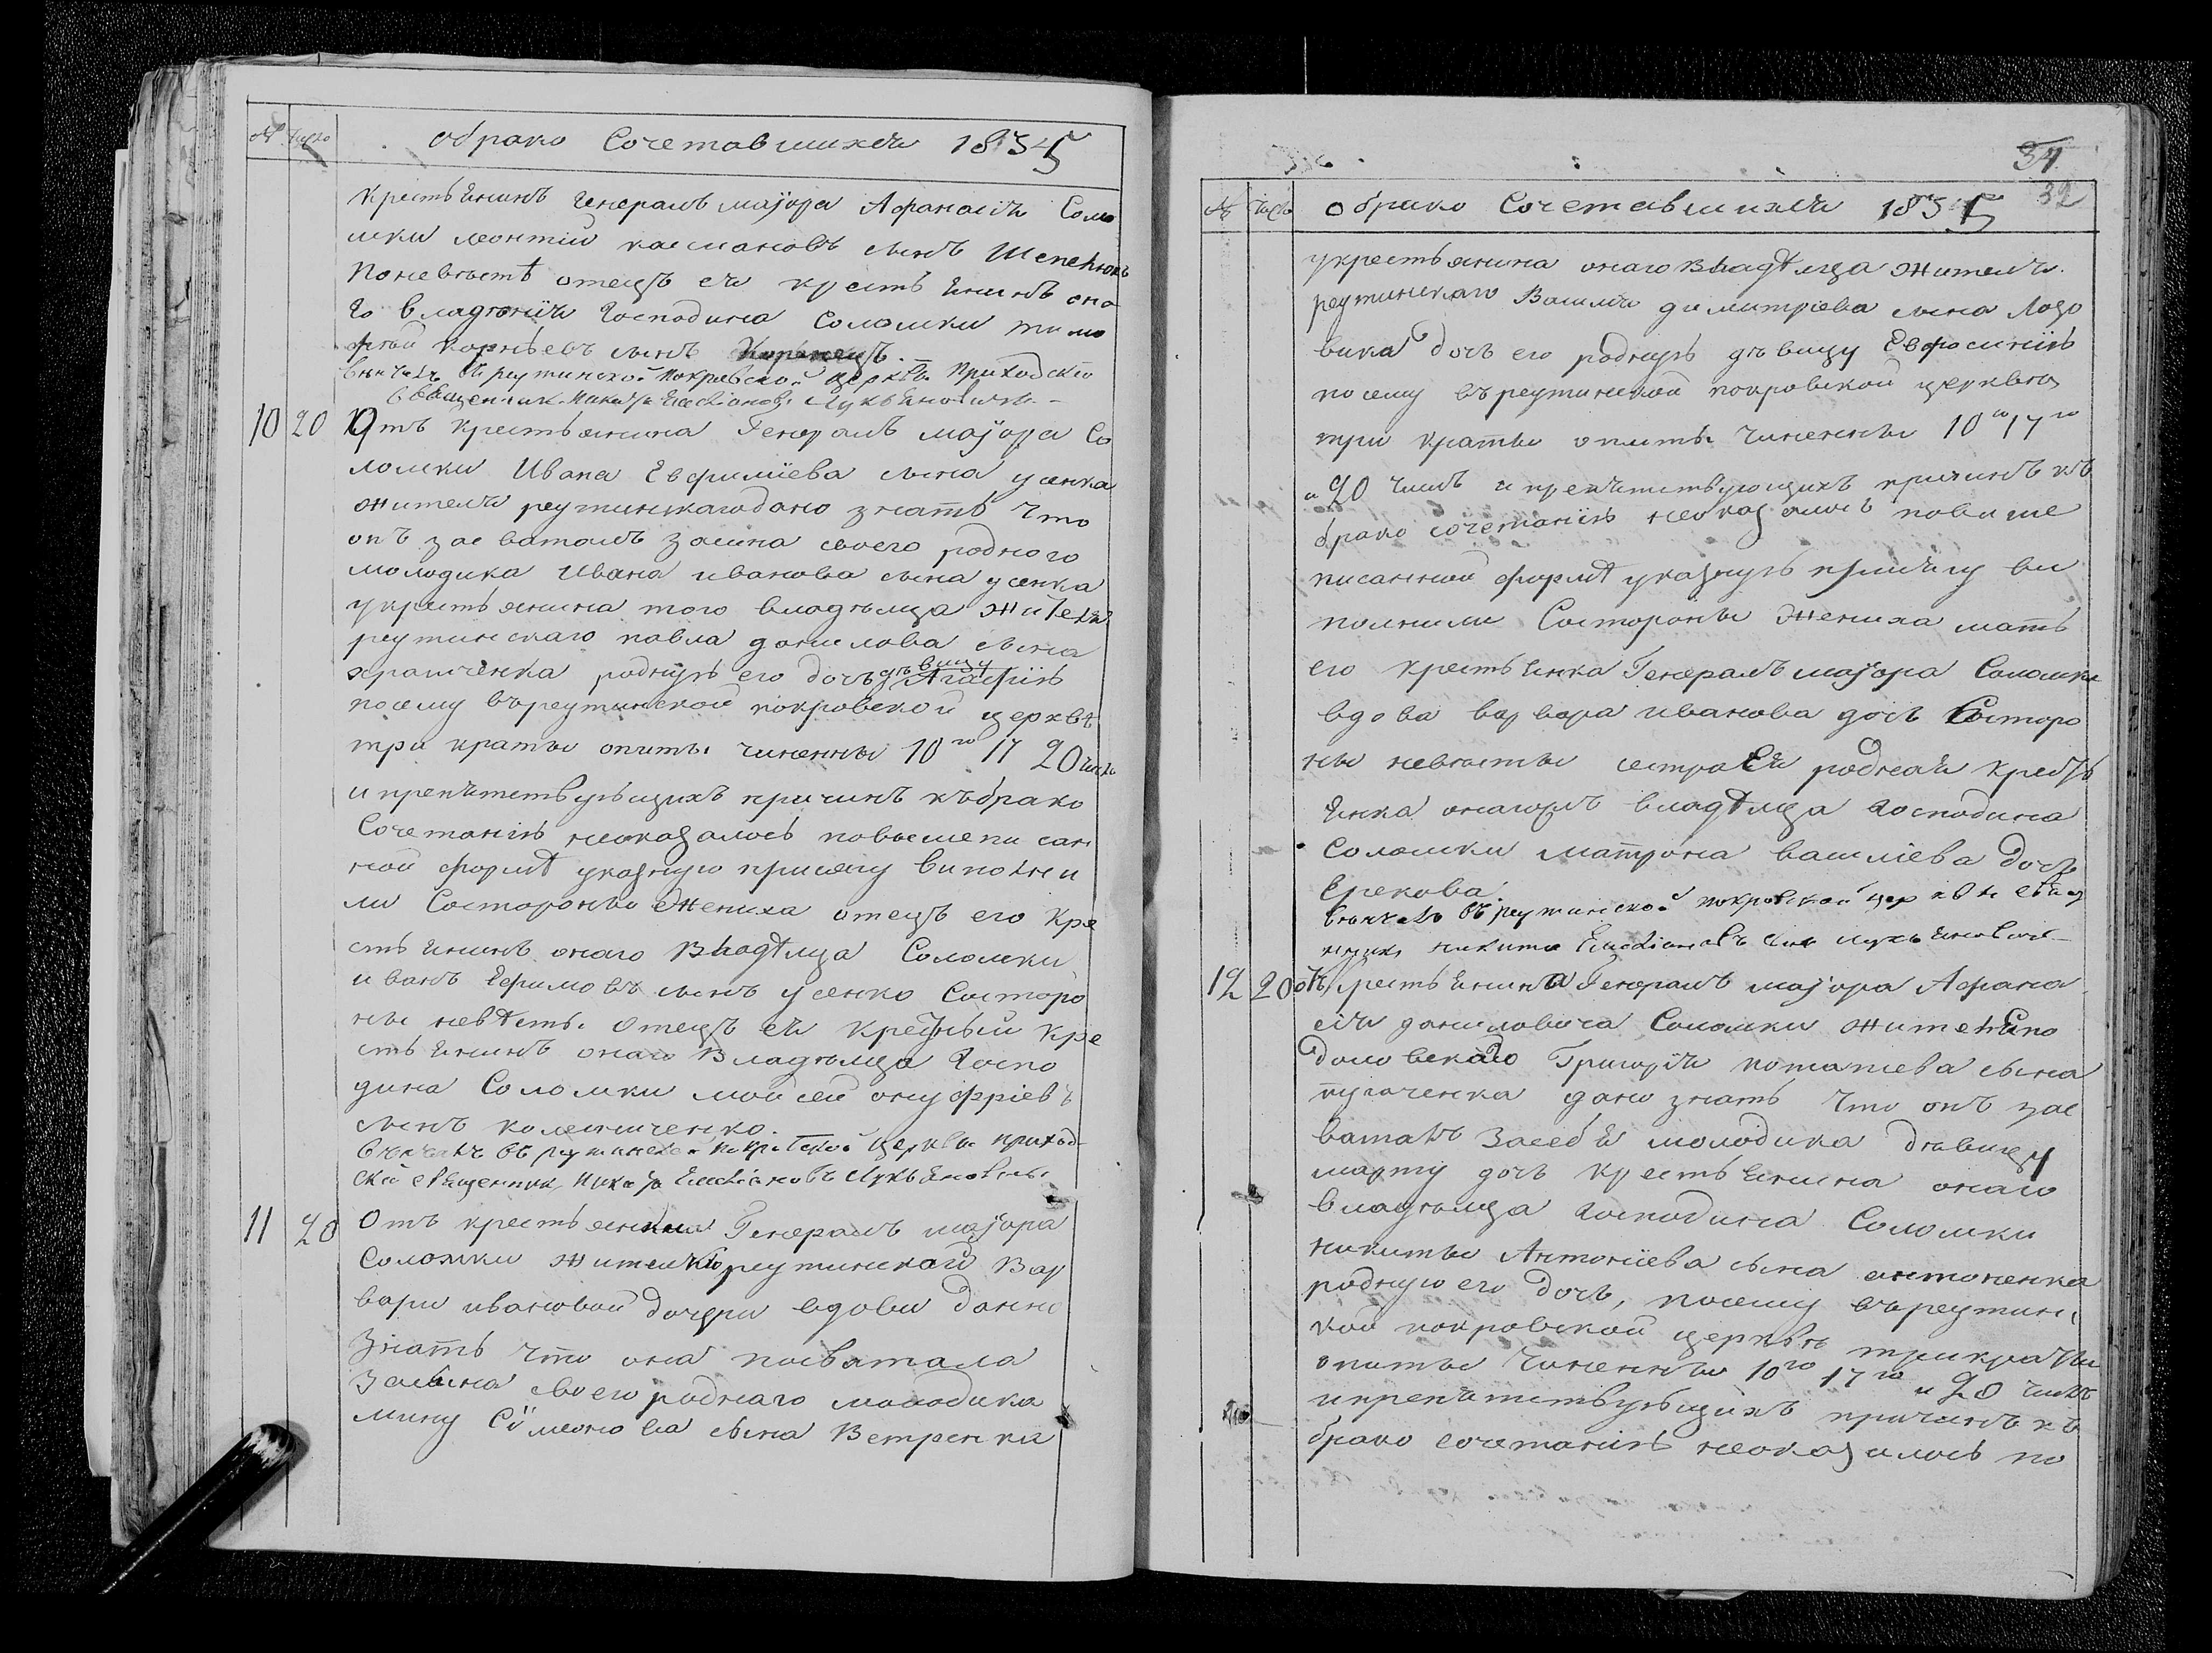 № Число обрако Сочетавшихся 1835
Крестьянинъ Генералъ маіора Афанасія Соло
мки леонтій касмановъ сынъ Шепенокъ
Поневѣстѣ отецъ ея крестьянинъ она
го владѣнія Господина Соломки тимо
фтей Корнѣевъ сынъ
Вѣнчалъ въ реутинской покровской церкви приходскій
Священникъ Никита Емеліановъ Лукьяновичъ
10 20 Отъ крестьянина Генералъ маіора Со
ломки Ивана Евфиміева сына усенка
жителя реутинскаго дано знать что
онъ засваталъ засина своего роднаго
молодика Ивана иванова сына усенка
укрестьянина того владѣльца жителя
реутинскаго павла данилова сына
храпченка роднуь его дочь дѣвицу Агафію
посему въреутинской покровской церквѣ
три кратны опиты чиненны 10го 17 20 числ
и препятствуьщихъ причинъ къбрако
Сочетанію неоказалось повышеписан
ной формѣ указную присягу виполни
ли Состороны жениха отецъ его Кре
стьянинъ онаго Владѣлца Соломки
иванъ Ефимовъ сынъ усенко Состоро
ны невѣсты Отецъ ея крестный кре
стьянинъ онаго Владѣльца Госпо
дина Соломки мойсей онуфріевъ
сынъ колесниченко.
вѣнчалъ въ реутинской покровской церкви приход
скій священникъ Никита Емеліановъ Лукьяновичъ
11 20 Отъ крестьянина Генералъ маіора
Соломки жителки реутинской Вар
вари ивановой дочери вдови данно
Знать что она посватала
Засына своего роднаго молодика
мину Сѵмеонова сына Ветренка
34
32
№ Число обрако Сочетавшихся 1835
укрестьянина онаго владѣлца жителя
реутинскаго Василія димитріева сына Лозо
вика дочь его роднуь дѣвицу Евфросинію
посему въреутинской покровской церквѣ
три кратны опиты чиненны 10го 17го
и 20 числъ и препятствующихъ причинъ къ
брако сочетанію неоказалось повише
писанной формѣ указнуь присягу ви
полнили Состороны Жениха мать
его крестьянка Генералъ маіора Соломки
вдова варвара иванова дочь Состоро
ны невѣсты сестра Ея родная кресть
янка онагожъ владѣлца Господина
Соломки матрона василіева дочь
Ерекова.
Вѣнчалъ въ реутинской покровской церквѣ свящ
нникъ никита Емеліановъ Сынъ лукьяновичъ
12 20 отъ крестьянина Генералъ маіора Афана
сія даниловича Соломки жителя Спо
доловскаго Григорія потапіева сына
пугаченка дано знать что онъ зас
ваталъ Засебя молодика дѣвицу
марту дочь крестьянина онаго
владѣльца Господина Соломки
никиты Антоніева сына антоненка
родную его дочь, посему въреутинс
кой покровской церквѣ трикратны
опиты чиненны 10го 17го и 20 числъ
ипрепятствуьщихъ причинъ къ
брако сочетанію неоказалось по